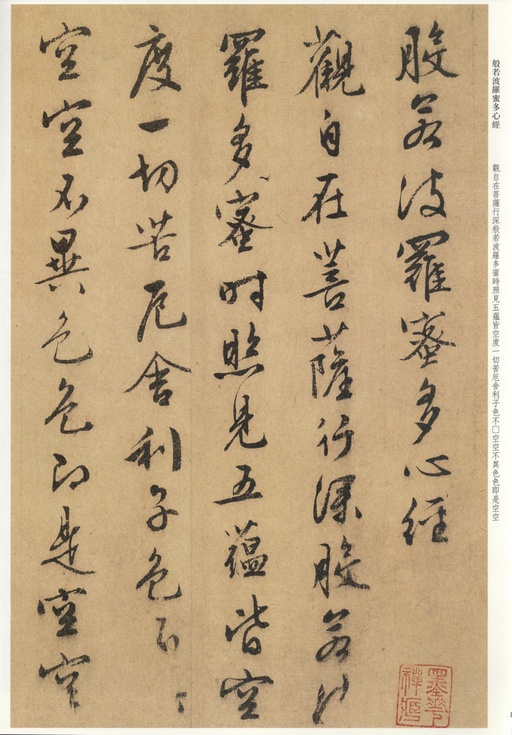 般若波羅蜜多心經
觀自在菩薩行深般若波羅多蜜時照見五蘊皆空度一切苦厄舍利子色不□空空不異色色即是空空
般若波羅蜜多心經
觀自在菩薩行深般若波
羅多蜜時照見五蘊皆空
度一切苦厄舍利子色不
空空不異色色即是空空